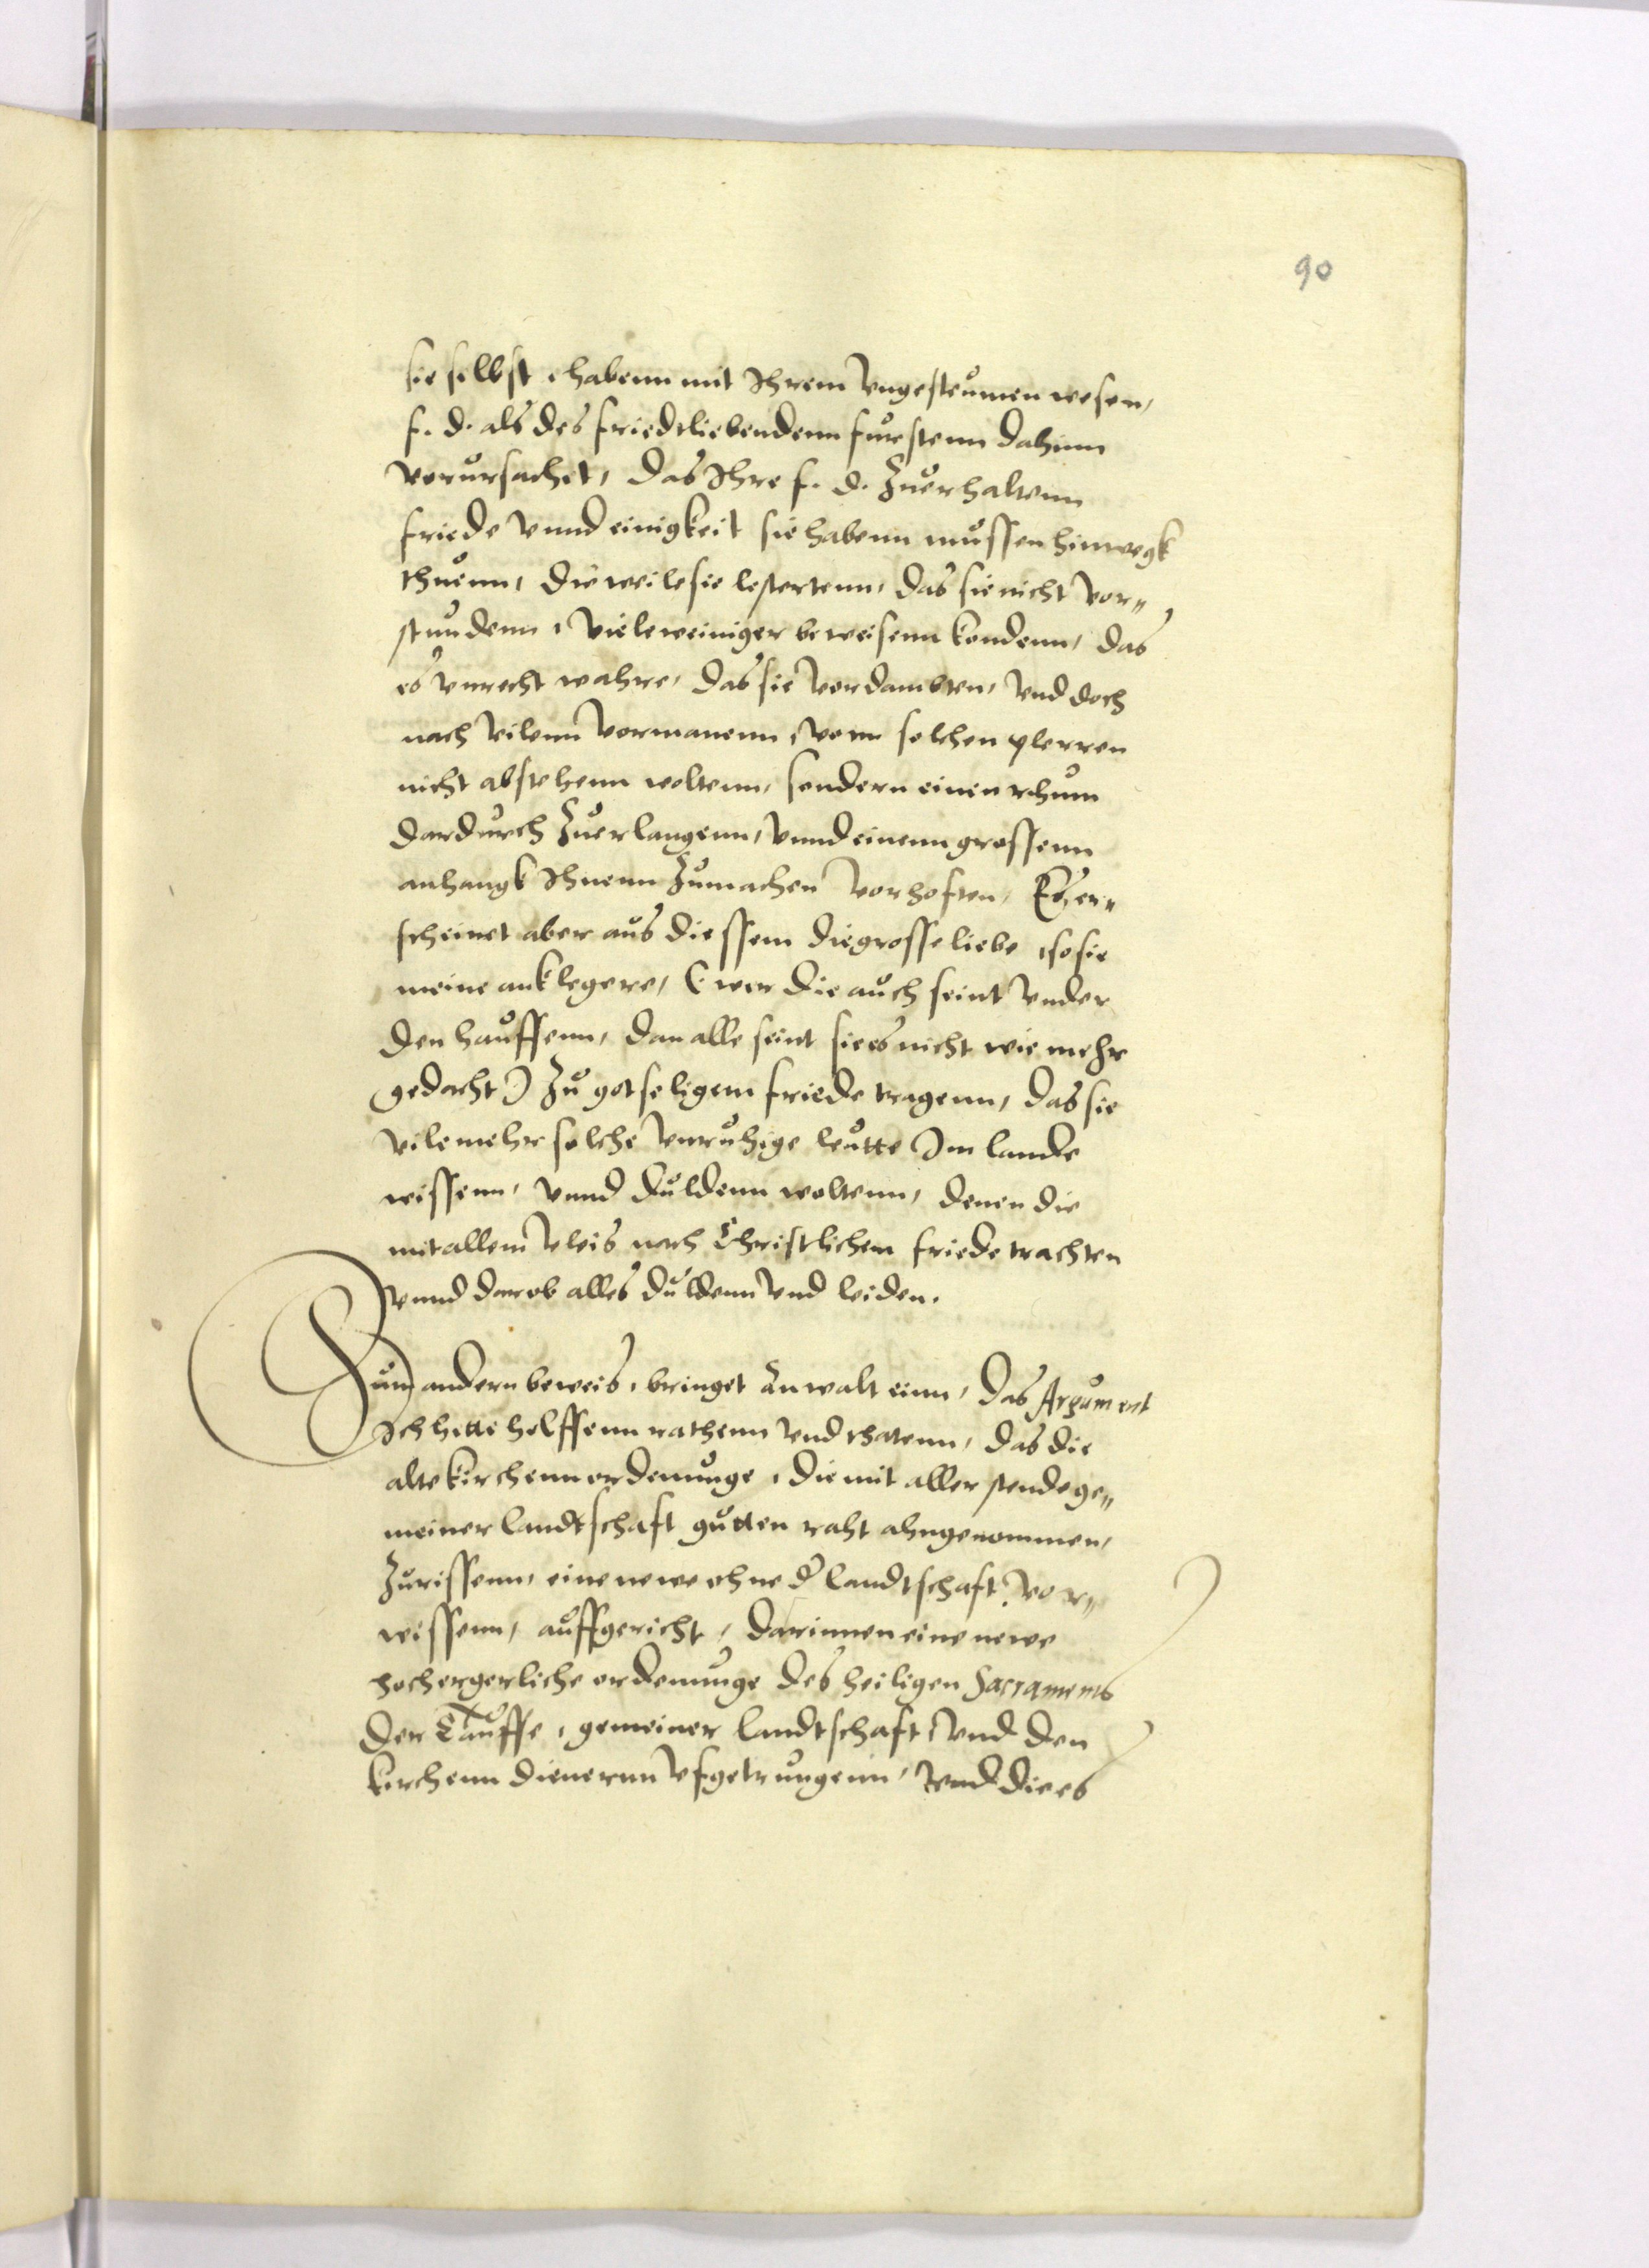 90
sie selbst, habenn mit Ihrem Vngesteumen wesen,
f. d. als des friedtliebendenn fursten dahinn
verursachet, das Ihre f. d. Zuerhaltenn
friede vnnd einigkeit sie habenn mussen hinwegk
thuenn, die weile sie lestertenn, das sie nicht vor„
stundenn, viele weiniger beweisenn kondenn, das
es vnrecht wahre, das sie vordambten, vnd doch
nach vilenn vormanenn, vonn solchen plerren
nicht abstehenn woltenn, sondern einen rhum
dardurch Zuerlangenn, vnnd einenn grossenn
anhangk Ihnenn Zumachen vorhoften, Es er„
scheinet aber aus diessem die grosse liebe, so sie
meine anklegere, (wer die auch seint vnder
den hauffenn, dan alle seint sie es nicht wie mehr
gedacht) Zu gotseligem friede tragenn, das sie
vile mehr solche vnruhige leutte Im lande
wissenn, vnnd duldenn woltenn, denen die
mit allem vleis nach Christlichem friede trachten
vnnd darob alles duldenn vnd leiden.
Zum andern beweis, bringet Anwalt einn, das Argument
Ich hette helffenn rathenn vnd thatenn, das die
alte kirchennordenunge, die mit aller stende ge„
meiner landtschaft gutten raht ahngenommen,
Zurissenn, eine newe ohne d landtschaft vor„
wissenn, auffgericht, darinnen eine newe
hochergerliche ordenunge des heiligen Sacraments
der Tauffe, gemeiner landtschaft, vnd den
kirchenn dienernn vfgetrungenn, vnnd die es